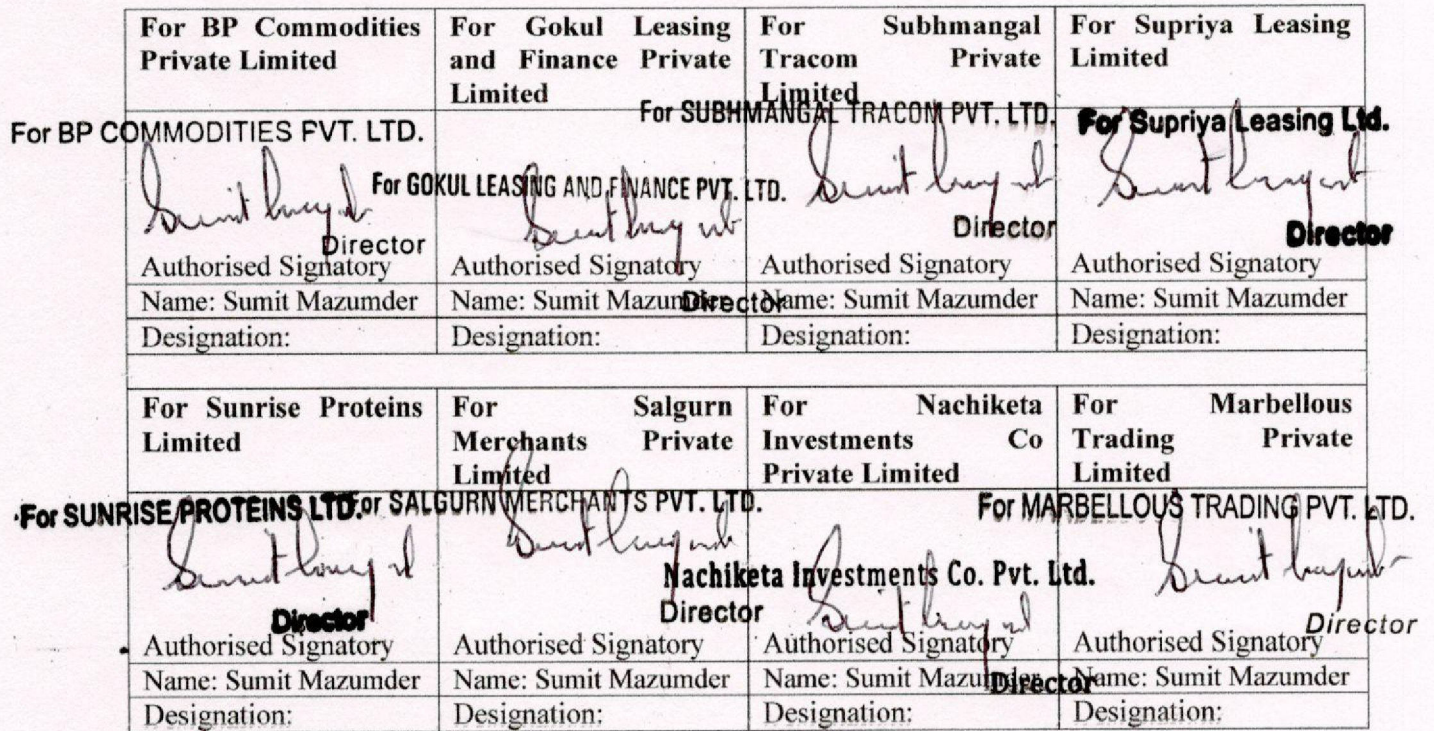 For BP Commodities Private Limited
For Gokul Leasing and Finance Private Limited
For Subhmangal Tracom Private Limited
For Supriya Leasing Limited
For BP COMMODITIES PVT. LTD.
Director
Authorised Signatory
For GOKUL LEASING AND FINANCE PVT. LTD.
Authorised Signatory
Director
For SUBHMANGAL TRACOM PVT. LTD.
Director
Authorised Signatory
For Supriya Leasing Ltd.
Director
Authorised Signatory
Name: Sumit Mazumder
Name: Sumit Mazumder
Name: Sumit Mazumder
Name: Sumit Mazumder
Designation:
Designation:
Designation:
Designation:
For Sunrise Proteins Limited
For Salgurn Merchants Private Limited
For Nachiketa Investments Co Private Limited
For Marbellous Trading Private Limited
For SUNRISE PROTEINS LTD.
Director
Authorised Signatory
For SALGURN MERCHANTS PVT. LTD.
Director
Authorised Signatory
Nachiketa Investments Co. Pvt. Ltd.
Authorised Signatory
Director
For MARBELLOUS TRADING PVT. LTD.
Director
Authorised Signatory
Name: Sumit Mazumder
Name: Sumit Mazumder
Name: Sumit Mazumder
Name: Sumit Mazumder
Designation:
Designation:
Designation:
Designation: